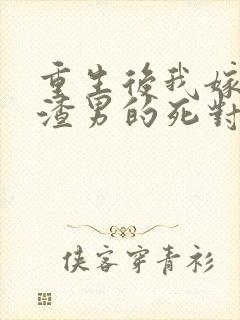 重生後我嫁
渣男的死對
侠客穿青衫